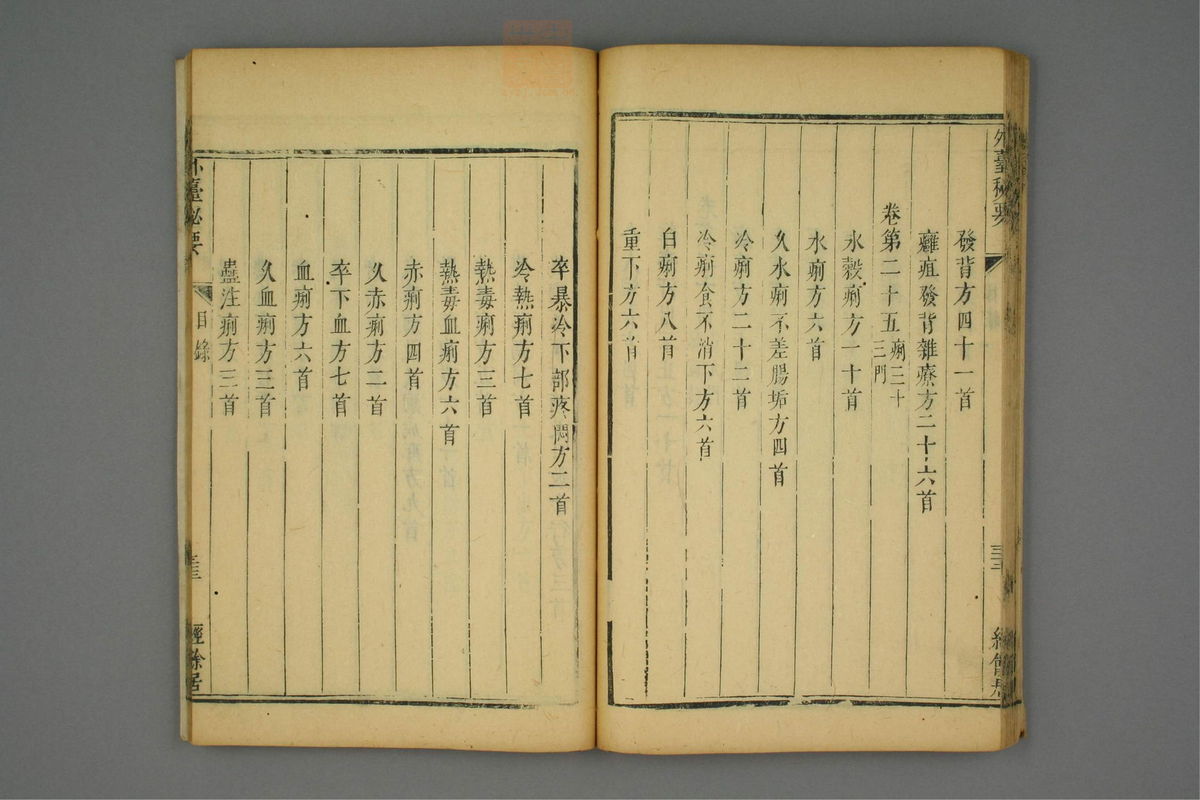 外臺秘要
發背方四十一首
癰疽發背雜療方二十六首
卷第二十五 痢三十三門
水穀痢方一十首
水痢方六首
久水痢不差腸垢方四首
冷痢方二十二首
冷痢食不消下方六首
白痢方八首
重下方六首
卒暴冷下部疼悶方二首
冷熱痢方七首
熱毒痢方三首
熱毒血痢方六首
赤痢方四首
久赤痢方二首
卒下血方七首
血痢方六首
久血痢方三首
蠱注痢方三首
外臺秘要
目錄
經餘居